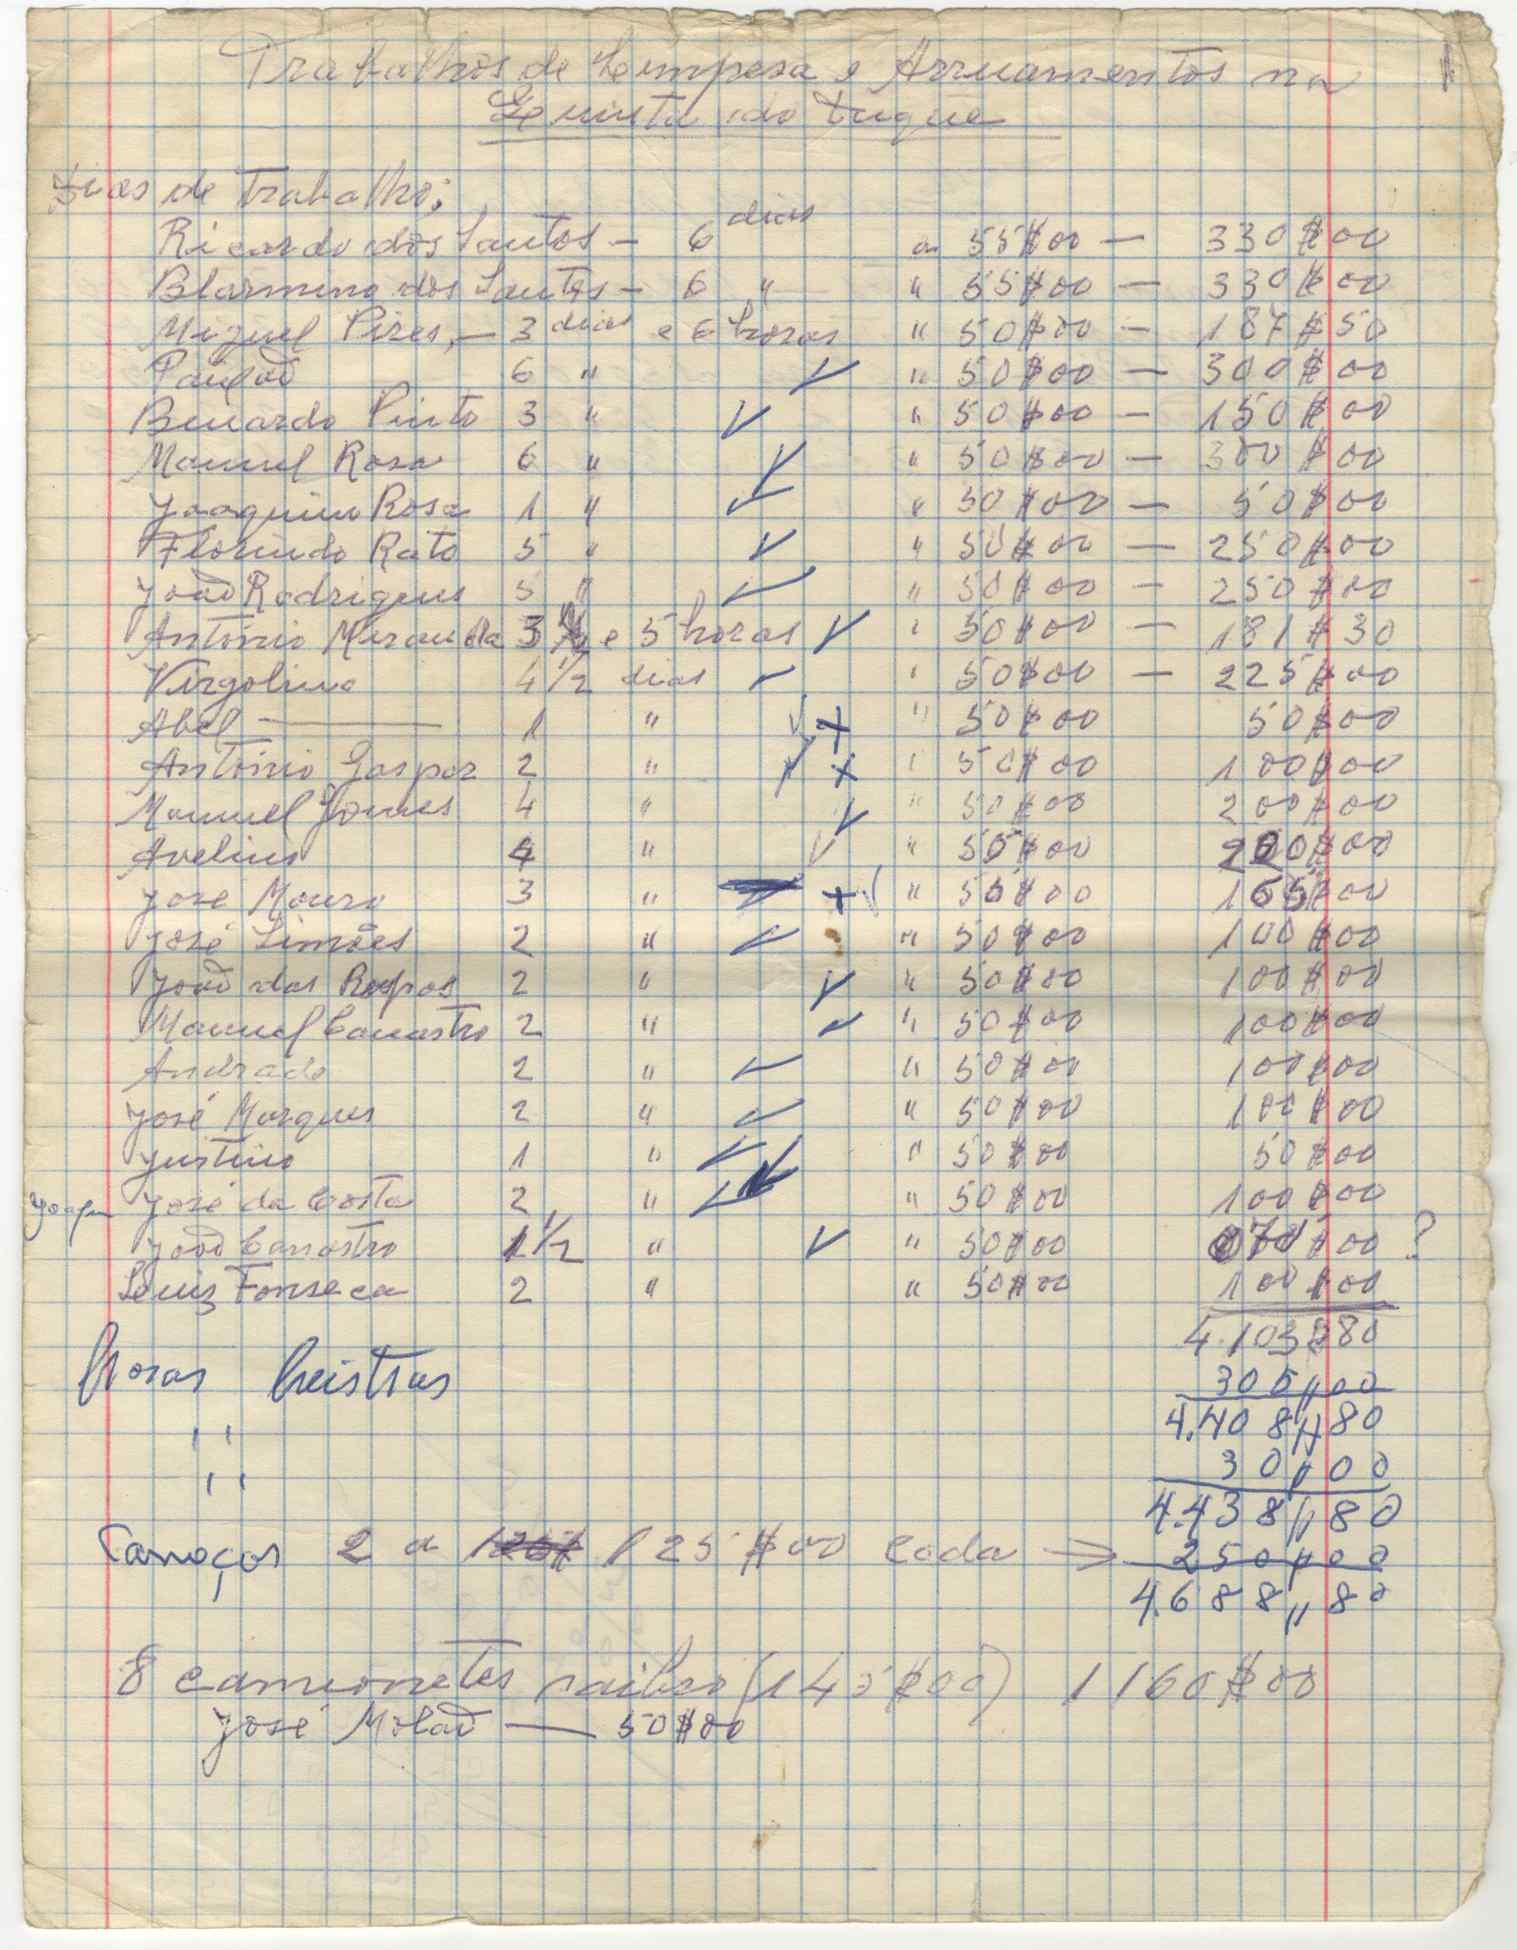 Trabalhos de Limpesa e Arruamentos na
Quinta do Duque
Dias de Trabalho:
Ricardo dos Santos - 6 dias a 55$00 - 330$00
Blarmino dos Santos - 6 " " 55$00 - 330$00
Miguel Pires, - 3 dias e 6 horas " 50$00 - 187$50
Paixão 6 " " 50$00 - 300$00
Bernardo Pinto 3 " " 50$00 - 150$00
Manuel Rosa 6 " " 50$00 - 300$00
Joaquim Rosa 1 " " 50$00 - 50$00
Florindo Rato 5 " " 50$00 - 250$00
João Rodrigues 5 " " 50$00 - 250$00
António Miranda 3 e 5 horas " 50$00 - 181$30
Virgolino 4 1/2 dias " 50$00 - 225$00
Abel 1 " " 50$00 50$00
António Gaspar 2 " " 50$00 100$00
Manuel Gomes 4 " " 50$00 200$00
Avelino 4 " " 55$00 220$00
José Mouro 3 " " 55$00 165$00
José Simões 2 " " 50$00 100$00
João das 2 " " 50$00 100$00
Manuel Canastro 2 " " 50$00 100$00
Andrade 2 " " 50$00 100$00
José Marques 2 " " 50$00 100$00
Justino 1 " " 50$00 50$00
José da Costa 2 " " 50$00 100$00
João Canastro 1 1/2 " " 50$00 $00 ?
Luiz Fonseca 2 " " 50$00 100$00
4.103$80
horas 305,,00
" 4.408,,80
" 30,,00
4.438,,80
Carroças 2 a 125$00 Cada → 250,,00
4.688,,80
8 camionetes saibro (145$00) 1160$00
José Molão — 50$00